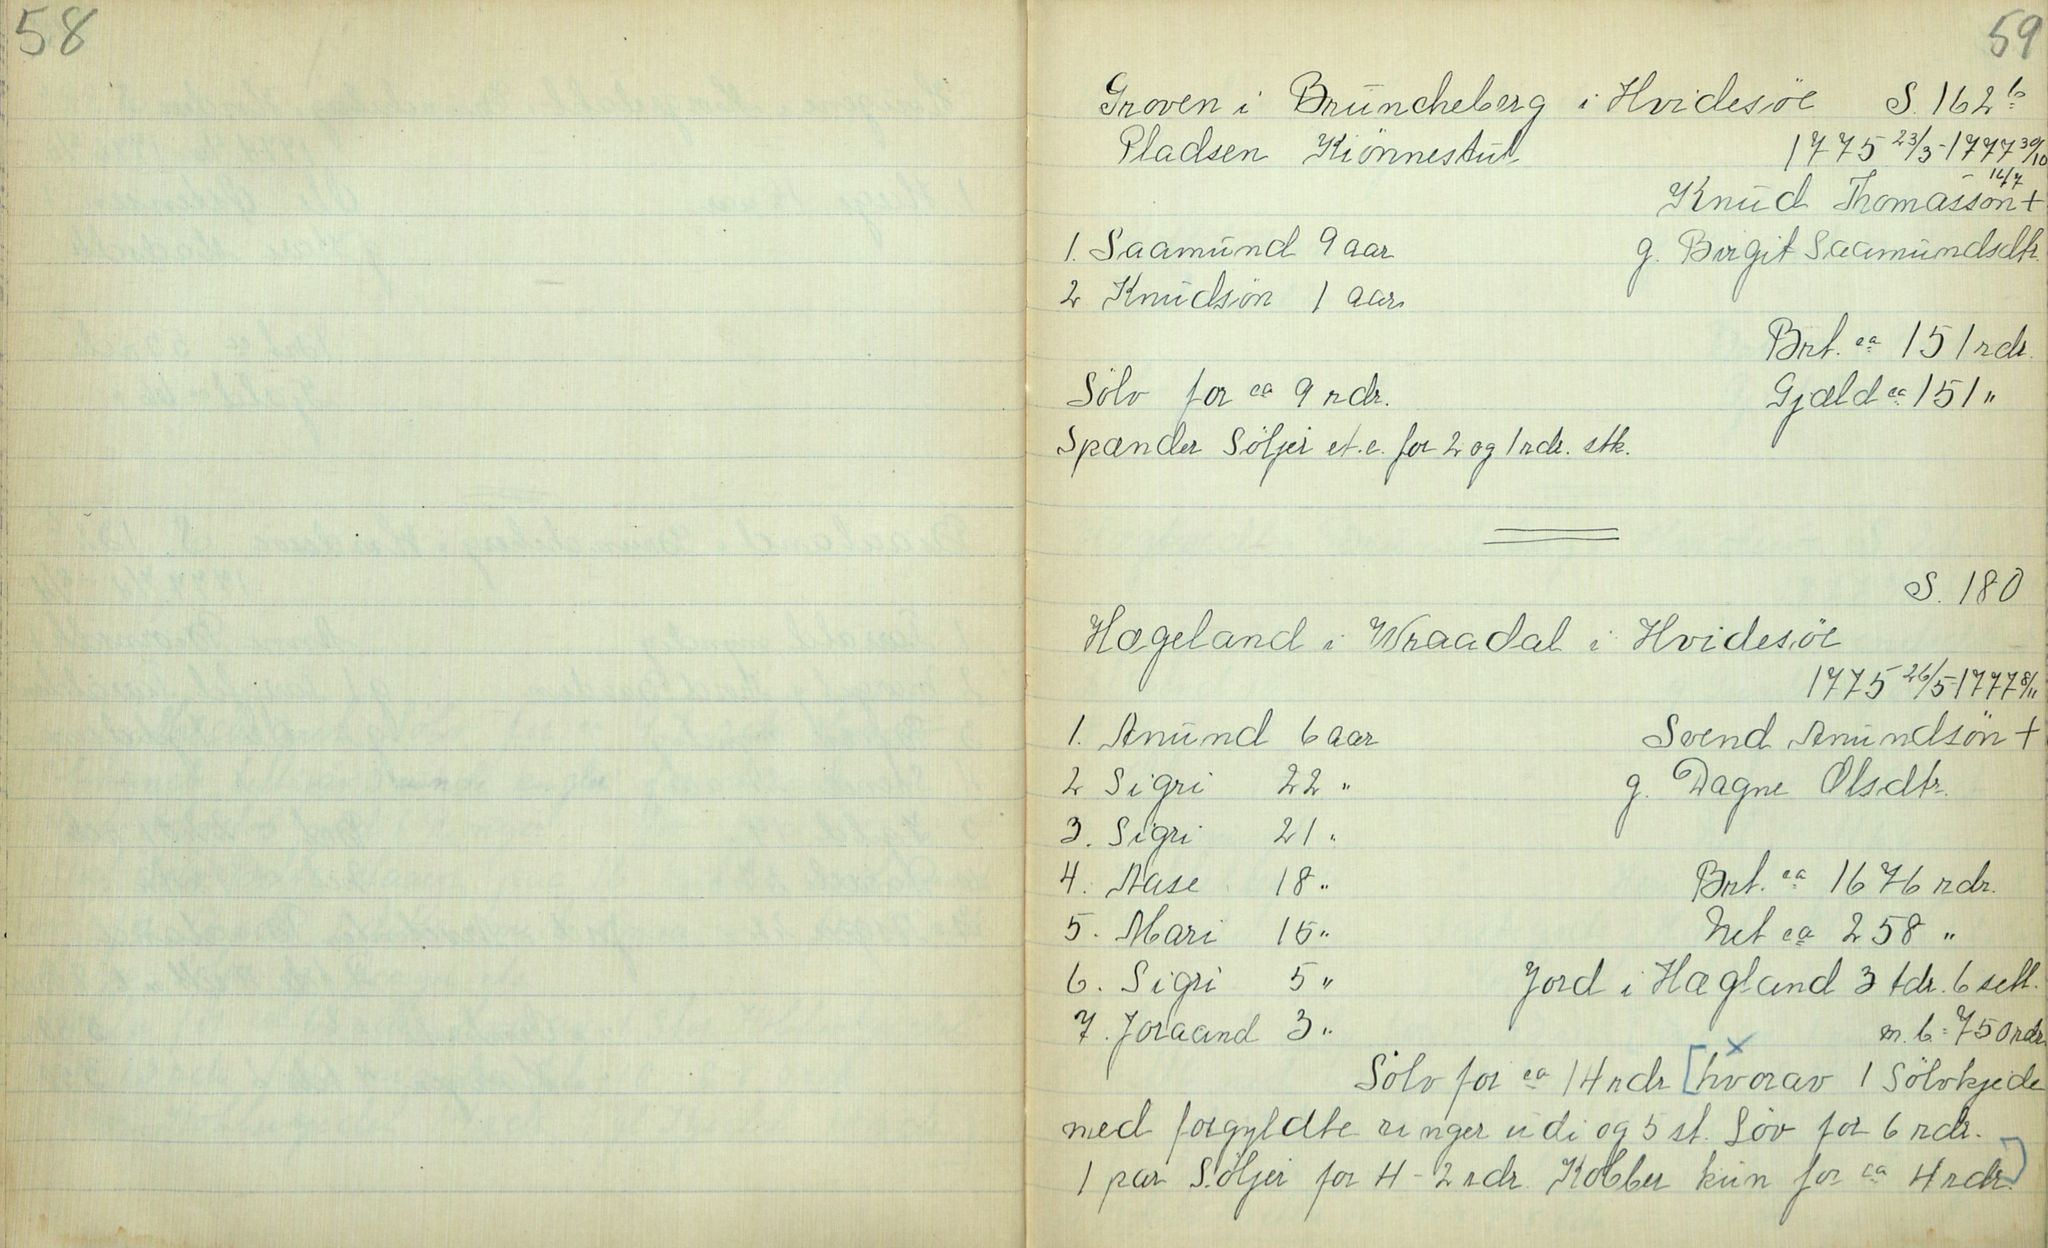 58
59
Groven i Brüncheberg i Hvidesöe S. 162 b
Pladsen Kiönnestul 1775 23/3-1777 30/10
16/7
Knüd Thomassön +
1. Saamünd 9 aar g. Birgit Saamündsdtr.
2 Knüdsön 1 aar
Brt. ca 151 rdr.
Sölv for ca 9 rdr. Gjæld ca 151 "
Spænder Söljer et.c. for 2 og 1 rdr. stk.
S. 180
Hægeland i Wraadal i Hvidesöe
1775 26/5-1777 8/11
1. Anünd 6 aar Svend Anündsön +
2 Sigri 22 " g. Dagne Olsdtr.
3. Sigri 21 "
4. Aase 18 " Brt. ca 1676 rdr.
5. Mari 15 " Net ca 258 "
6. Sigri 5 " Jord i Hægland 3 tdr. 6 sett.
7. Joraand 3 " m. b = 750 rdr
Sölv for ca 14 rdr [hvorav 1 Sölvkjede
med forgyldte ringer udi og 5 st. Löv for 6 rdr.
1 par Söljer for 4 - 2 rdr. Kobber kün for ca 4 rdr.]